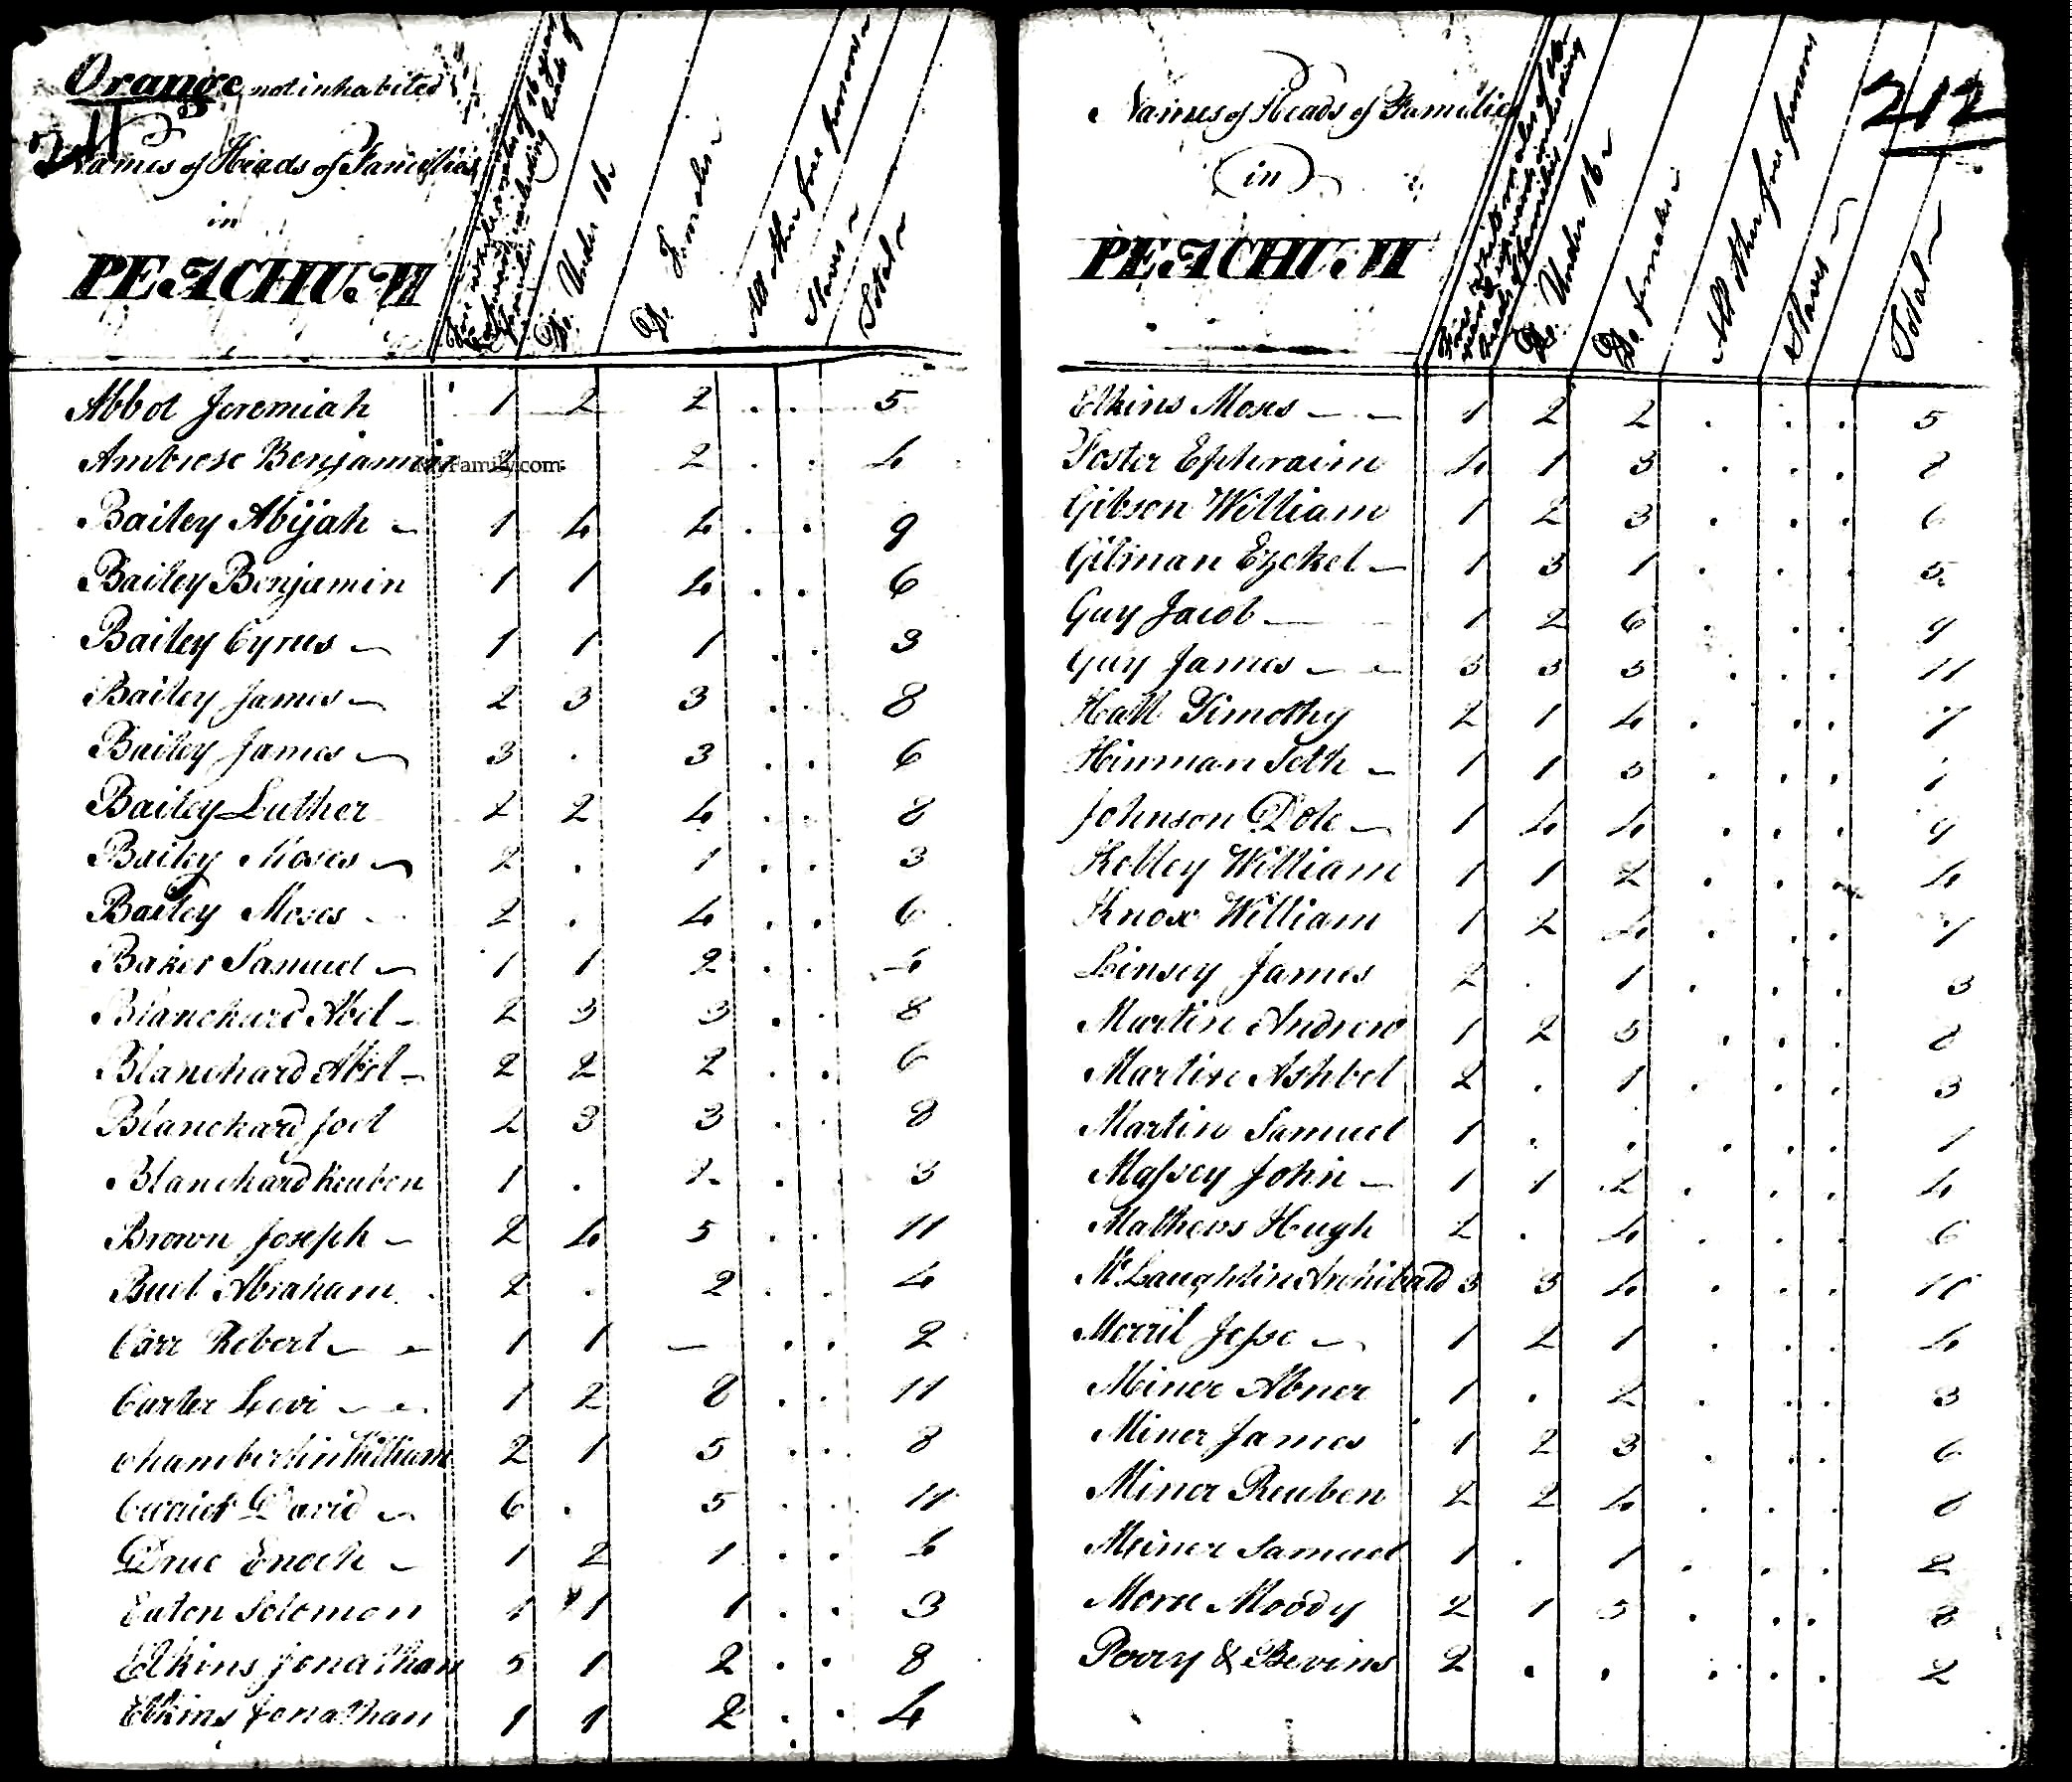 Orange not inhabited
211
Names of Heads of Families
in
PEACHUM
Free white males of 16 years & upwards including heads of families
Do. Under 16
Do. Females
All other free persons
Slaves
Total
Abbot Jeremiah 1 2 2 . . 5
Ambrose Benjamin 2 2 . . 4
Family.com
Bailey Abijah 1 4 4 . . 9
Bailey Benjamin 1 1 4 . . 6
Bailey Cyrus 1 1 1 . . 3
Bailey James 2 3 3 . . 8
Bailey James 3 . 3 . . 6
Bailey Luther 2 2 4 . . 8
Bailey Moses 2 . 1 . . 3
Bailey Moses 2 . 4 . . 6
Baker Samuel 1 1 2 . . 4
Blanchard Abel 2 3 3 . . 8
Blanchard Abel 2 2 2 . . 6
Blanchard Joel 2 3 3 . . 8
Blanchard Reuben 1 . 2 . . 3
Brown Joseph 2 4 5 . . 11
Buel Abraham 2 . 2 . . 4
Carr Robert 1 1 — . . 2
Carter Levi 1 2 8 . . 11
Chamberlin William 2 1 5 . . 8
David 6 . 5 . . 11
Enoch 1 2 1 . . 4
Eaton Solomon 1 1 1 . . 3
Elkins Jonathan 5 1 2 . . 8
Elkins Jonathan 1 1 2 . . 4
212
Names of Heads of Families
in
PEACHUM
Free white males of 16 years & upwards including heads of families
Do. Under 16
Do. Females
All other free persons
Slaves
Total
Elkins Moses 1 2 2 . . . 5
Foster Ephraim 4 1 3 . . . 8
Gibson William 1 2 3 . . . 6
Gilman Ezekel 1 3 1 . . . 5
Guy Jacob 1 2 6 . . . 9
Guy James 5 3 3 . . . 11
Hall Timothy 2 1 4 . . . 7
Hinman Seth 1 1 5 . . . 7
Johnson Dole 1 4 4 . . . 9
Kelley William 1 1 2 . . . 4
Knox William 1 2 4 . . . 7
Linsey James 2 . 1 . . . 3
Martin Andrew 1 2 5 . . . 8
Martin Ashbel 2 . 1 . . . 3
Martin Samuel 1 . . . . . 1
Massey John 1 1 2 . . . 4
Mathews Hugh 2 . 4 . . . 6
McLaughlin Archibald 3 3 4 . . . 10
Merril Jesse 1 2 1 . . . 4
Miner Abner 1 . 2 . . . 3
Miner James 1 2 3 . . . 6
Miner Reuben 2 2 4 . . . 8
Meiner Samuel 1 . 1 . . . 2
Morse Moody 2 1 5 . . . 8
Perry & Bevins 2 . . . . . 2